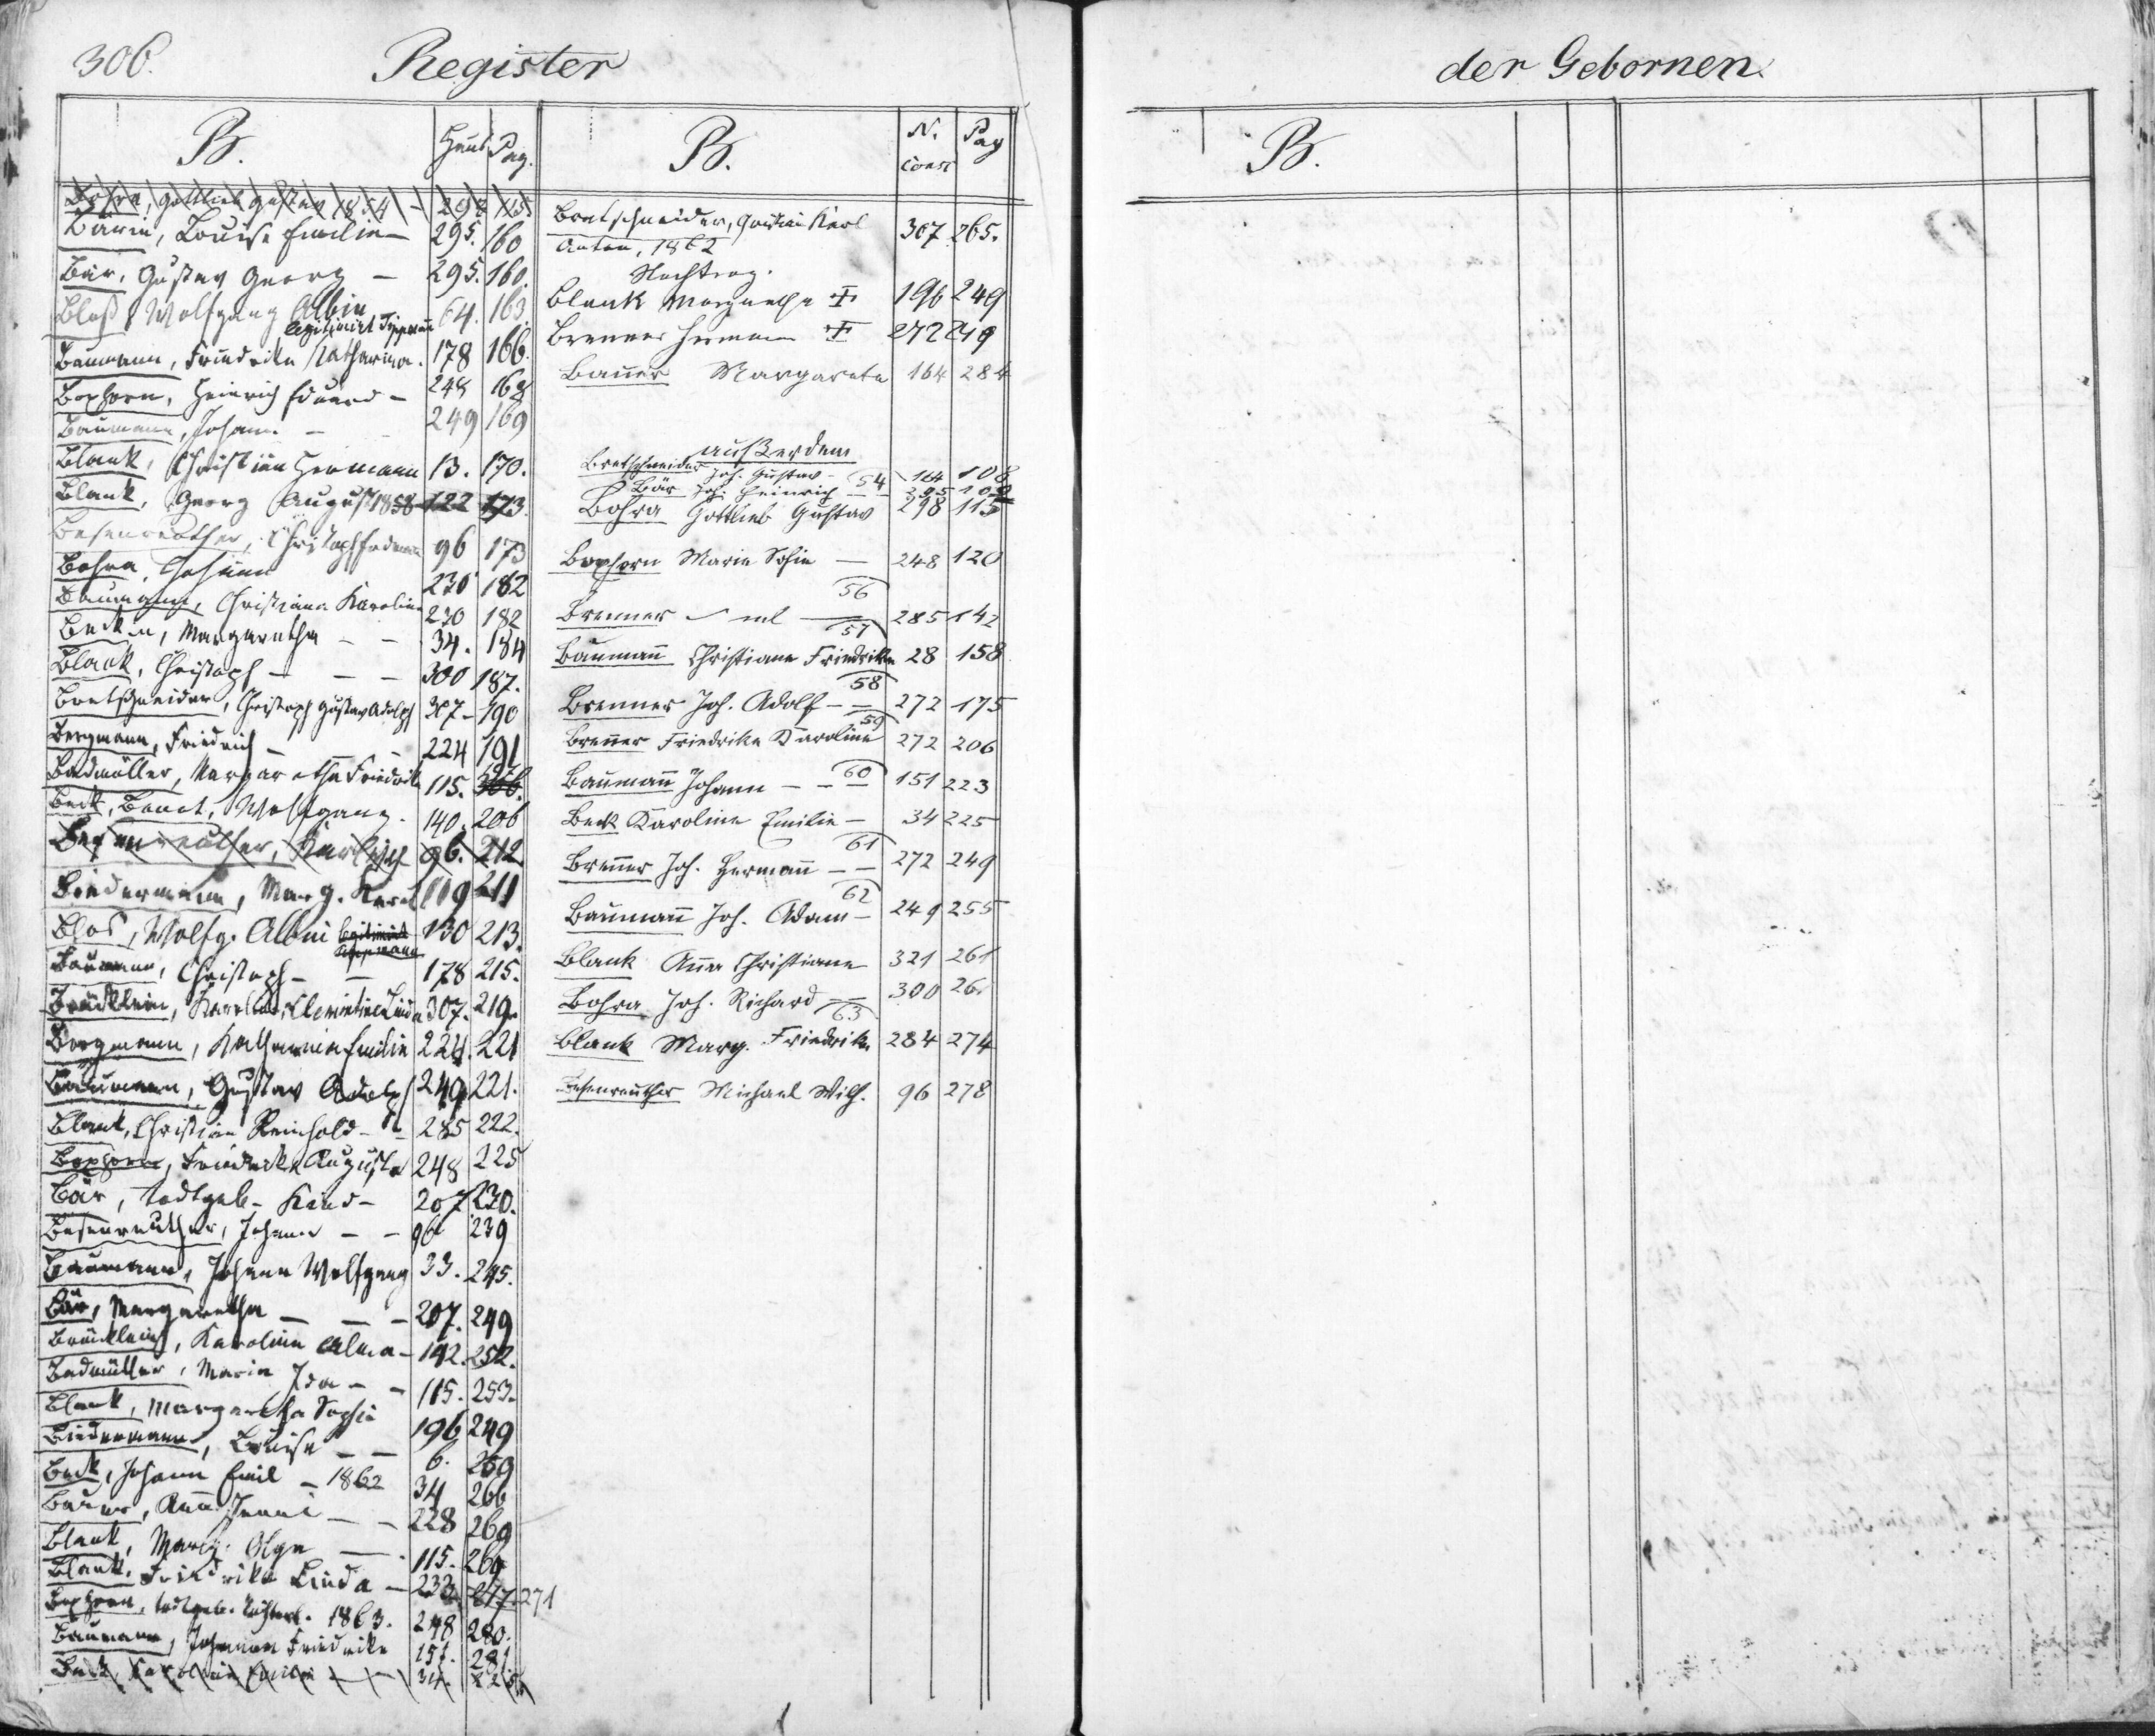 306.
Register
der Gebornen
B.
Haus Pag.
Bohra, Gottlieb Gustav 1854 - 298 115
Bärin, Louise Emilie - 295. 160
Bär, Gustav Georg - 295. 160.
Bloß, Wolfgang Albin 64. 163.
legitimirt Tippmann
Baumann, Friedrike Katharina. 178 166.
Boxhorn, Heinrich Eduard - 248 168
Baumann, Johann. - 249 169
Blank, Christian Hermann 13. 170.
Blank, Georg August 1858 122 173.
Besenreuther, Christoph 96 173
Bohra, Johann 230 182
Baumann, Christiana Karolina 230 182
Beckin, Margaretha - - 34. 184
Blank, Christoph - - - 300 187.
Bretschneider, Christoph Gustav Adolph 307 - 190
Bergmann, Friedrich - - 224 191
Badmüller, Margaretha Friedrike 115.
Beck, Wolfgang. 140. 206
Besenreuther, 96. 212
Biedermann, Marg. Karol 119 211
Blos, Wolfg. Albin legitimirt 130 213.
Tippmann
Baumann, Christoph - - 178 215.
Bräcklein, Clementine Linda 307. 219.
Bergmann, Katharina Emilie 224. 221
Baumann, Gustav Adolph 249 221.
Blank, Christian Reinhold - - 285 222.
Boxhorn, Friedrike Auguste 248 225
Bär, todtgeb. Kind - 207 230.
Besenreuther, Johann - - 96 239
Baumann, Johann Wolfgang 33. 245.
Bär, Margaretha - - - 207. 249
Bräcklein, Karoline Alma - 142. 252.
Badmüller, Maria Ida - - 115. 253.
Blank, Margaretha Sophie 196 249
Biedermann, Louise - - 6. 259
Beck, Johann Emil - 1862 34 266
Bauer, Anna Jenni - - 228 269
Blank, Marg. Olga - 115. 269
Blank, Friedrike Linda - 233 271
Boxhorn, todtgeb. 1863. 248 280.
Baumann, Johann Friedrike 151. 281
Beck, Karoline Emilie - - 34. 225
B.
N. Pag
Consc
Bretschneider, Karl 307 265.
Anton, 1862
Nachtrag.
Blank Margarethe 196 249
Brenner Hermann 272 249
Bauer Margareta 164 284
außerdem
Bretschneider Joh. Gustav - 54 164 108
Bär Joh. Heinrich - - 295 109
Bohra Gottlieb Gustav 298 115
Boxhorn Maria Sofie - 248 120
56
Brenner - 285 142
57
Baumann Christiane Friedrike 28 158
58
Brenner Joh. Adolf - - 272 175
59
Brenner Friedrike Karoline 272 206
Baumann Johann - - 60 151 223
Beck Karoline Emilie - 34 225
61
Brenner Joh. Hermann - - 272 249
62
Baumann Joh. Adam - 249 255
Blank Anna Christiane 321 261
Bohra Joh. Richard - 300 26
63
Blank Marg. Friedrike 284 274
Besenreuther Michael Wilh. 96 278
B.